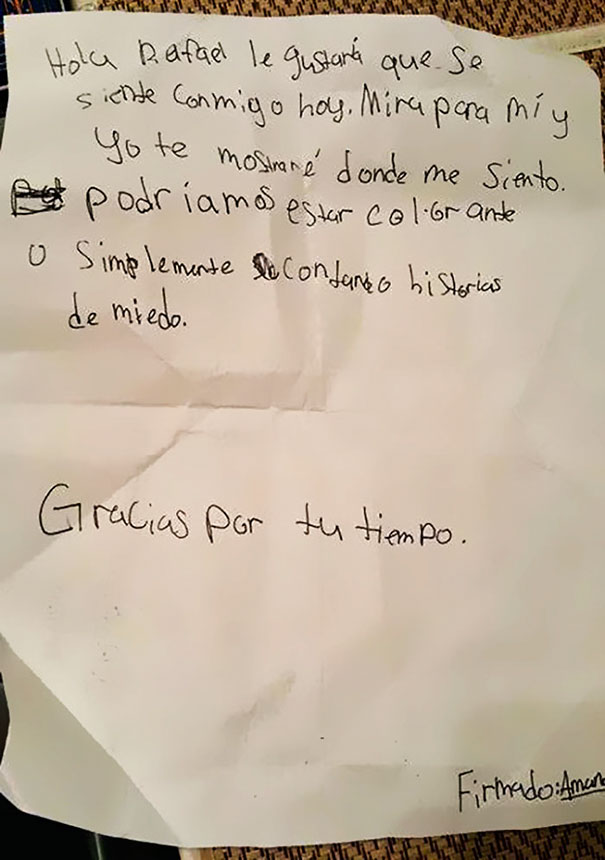 Hola Rafael le gustará que se
siente conmigo hoy. Mira para mí y
Yo te mostraré donde me siento.
podríamos estar colorante
o Simplemente contando historias
de miedo.
Gracias por tu tiempo.
Firmado:Aman